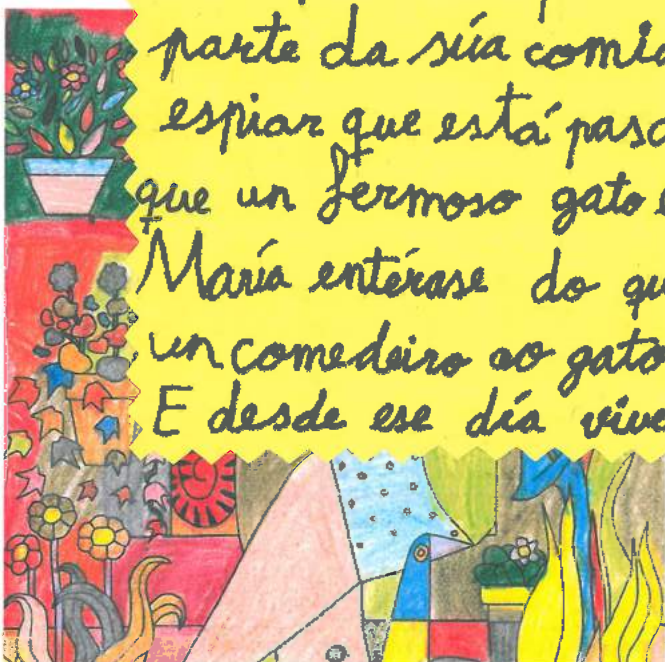 parte da súa
espiar que está
que un fermoso gato
María entérase do
un comedeiro ao gato
E desde ese día